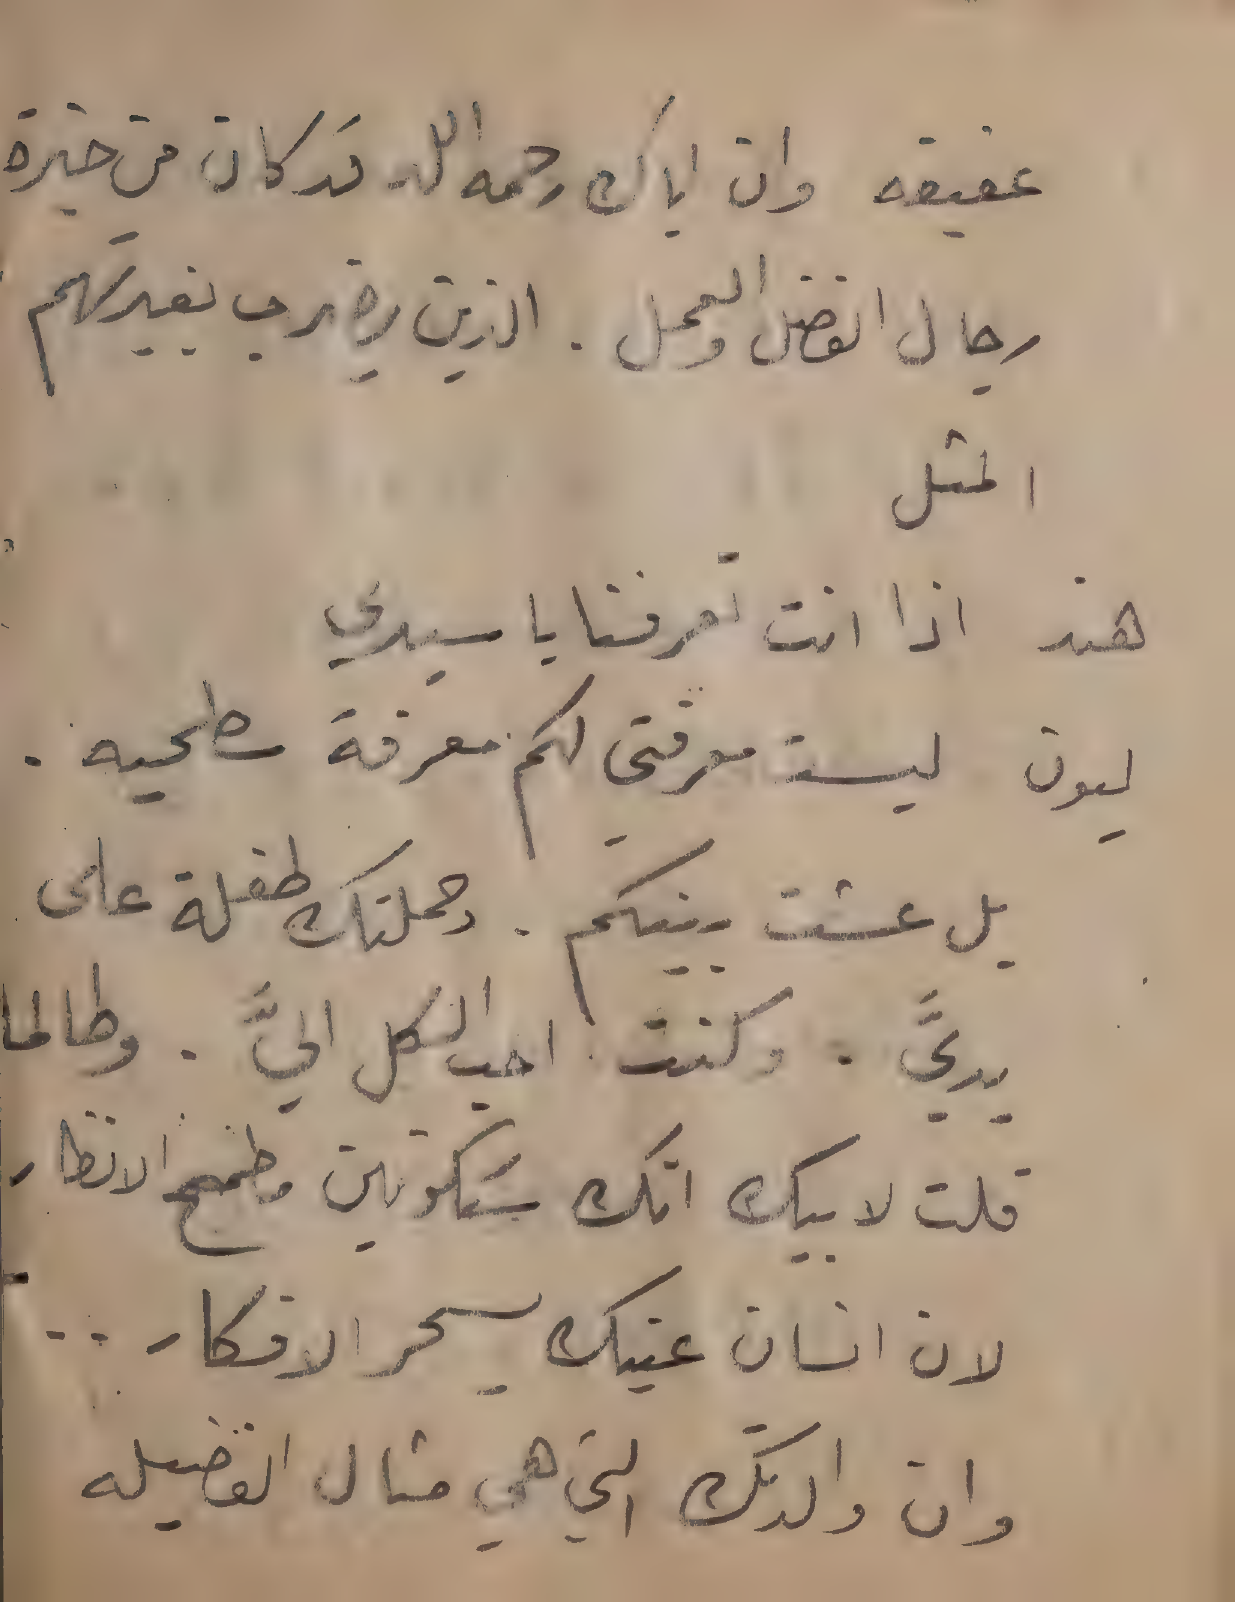 عفيفه وان اباك رحمه الله قد كان من خيرة
رجال الفضل والعمل . الذين يضرب بغيرتهم
المثل
هند اذا انت تعرفنا يا سيدي
ليون ليست معرفتي لكم معرفة سطحيه .
بل عشت بينكم . وحملتك طفلة على
يديَّ . وكنت احب الكل اليَّ . وطالما
قلت لابيك انك ستكونين مطمح الانظار
لان انسان عينيك يسحر الافكار ...
وان والدتك التي هي مثال الفضيله